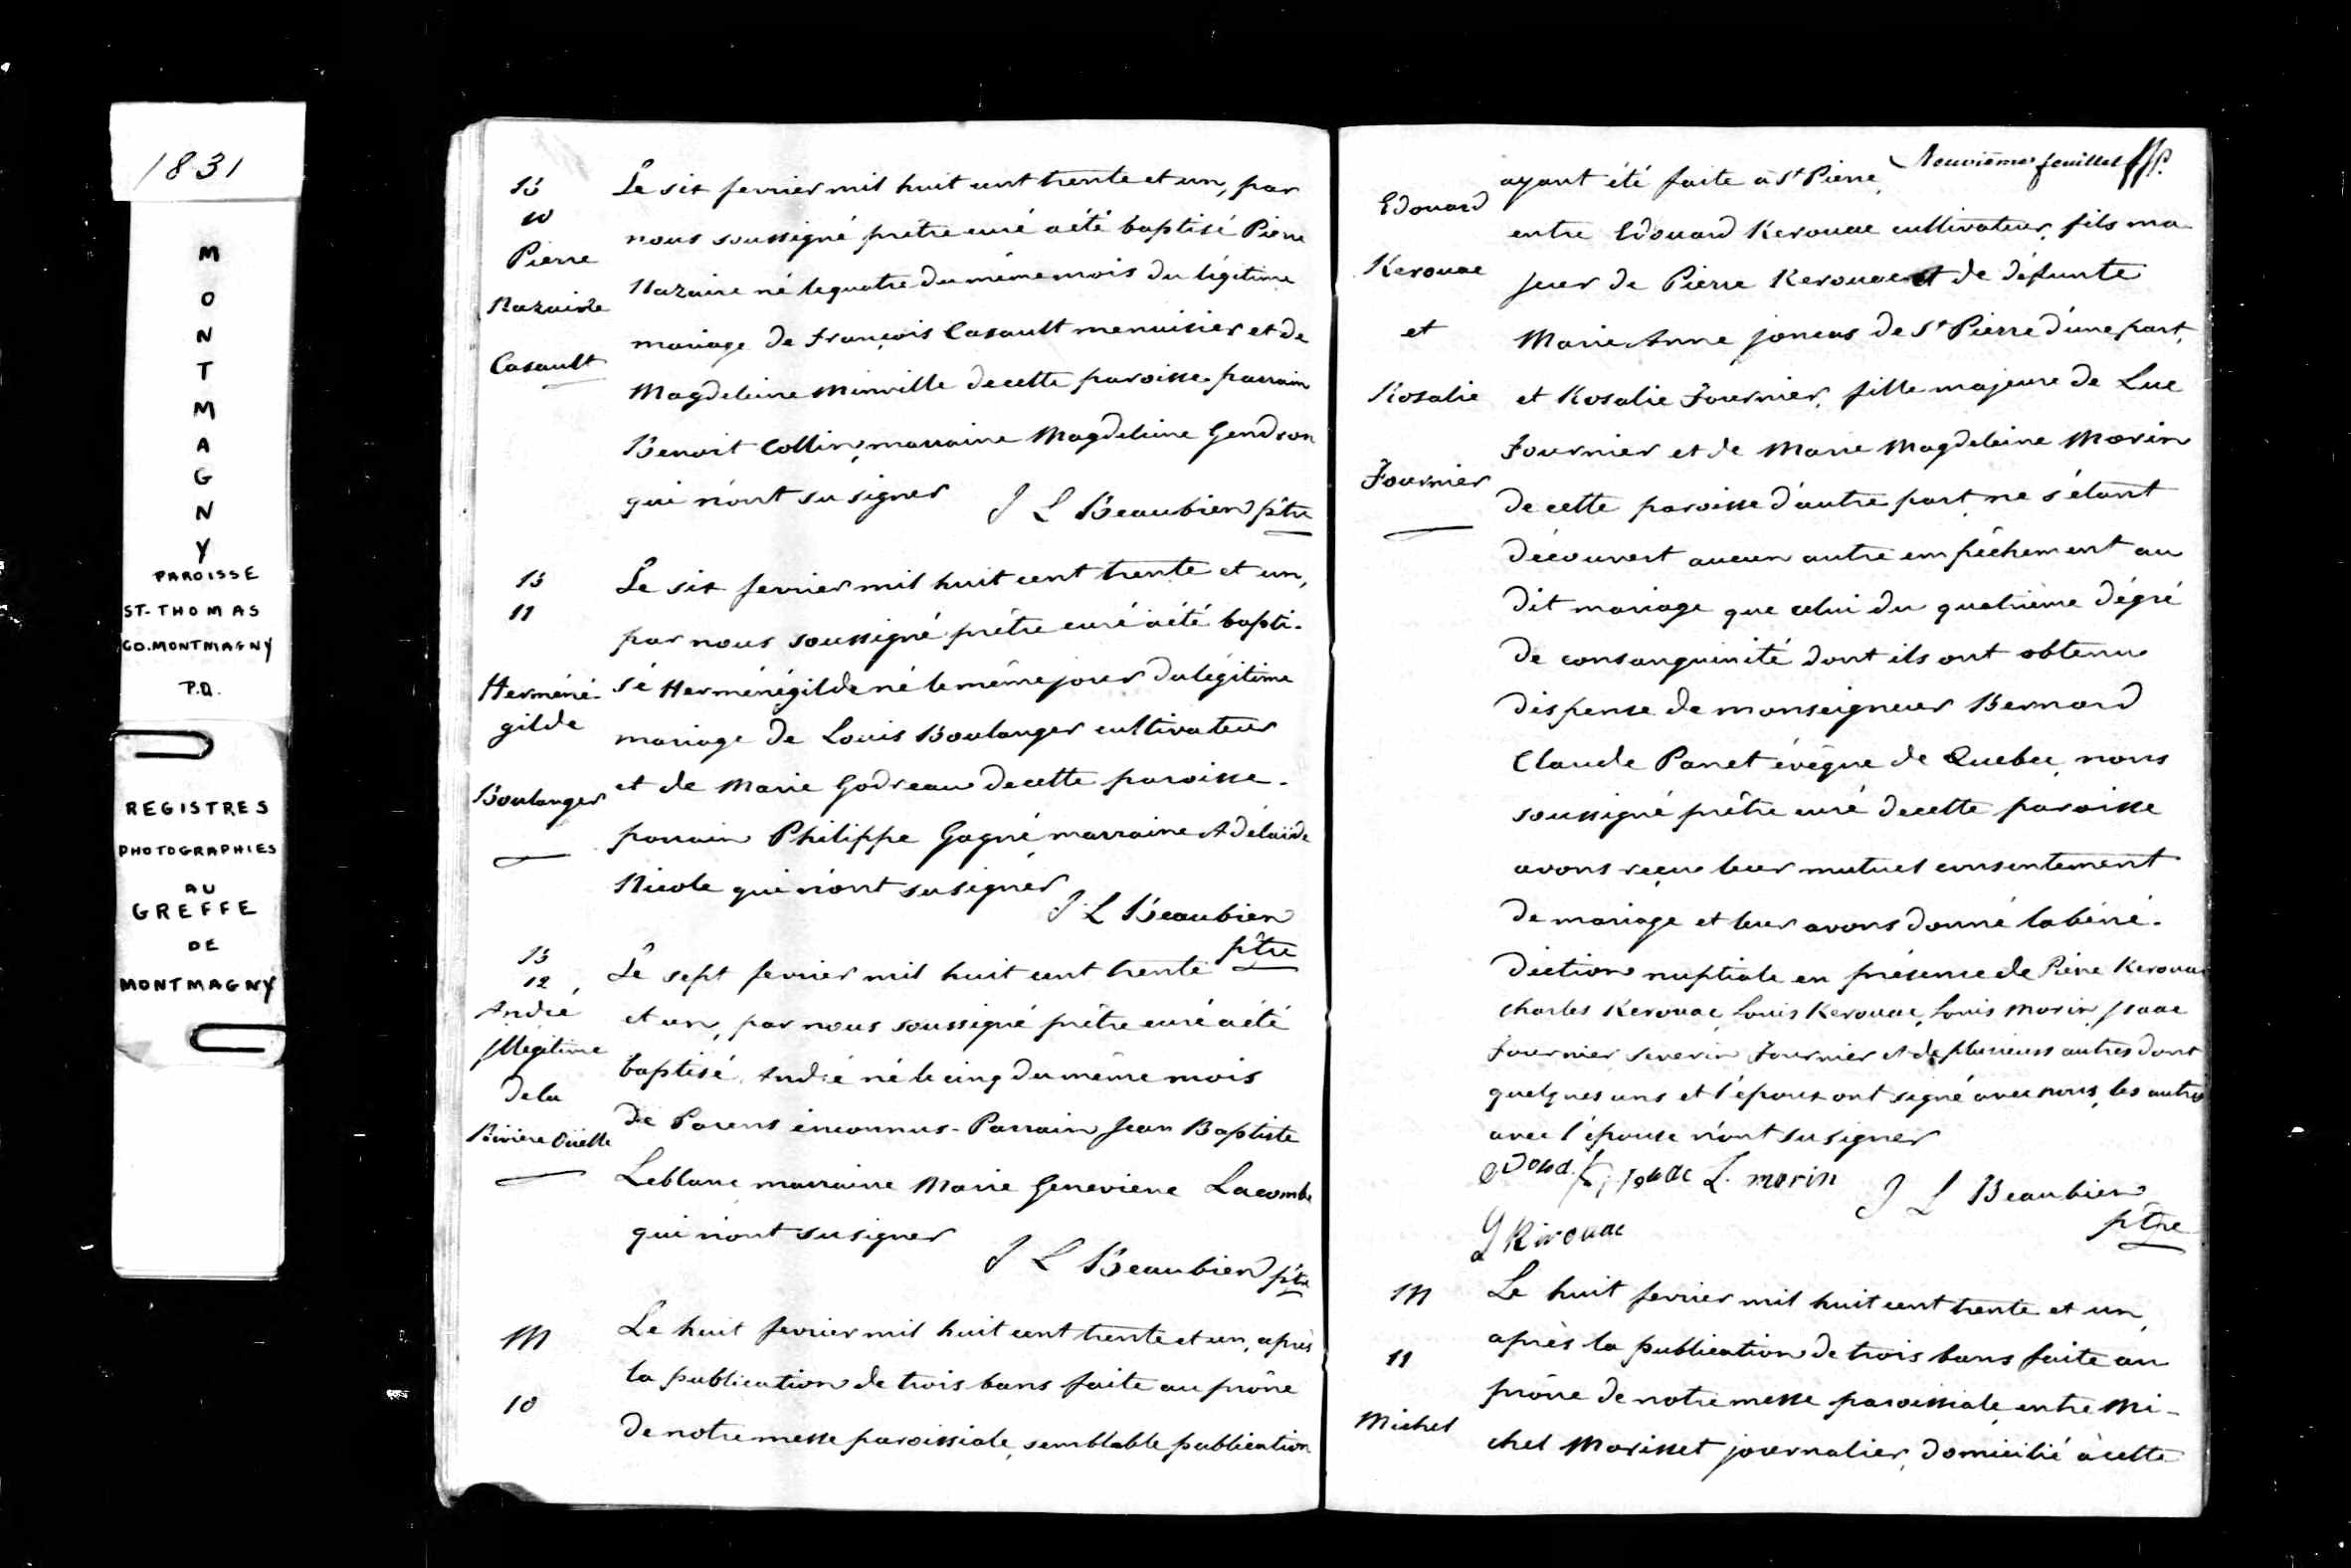 1831
MONTMAGNY
PAROISSE
ST-THOMAS
CO. MONTMAGNY
P.Q.
REGISTRES
PHOTOGRAPHIES
AU
GREFFE
DE
MONTMAGNY
B
10
Pierre
Nazaire
Casault
Le six fevrier mil huit cent trente et un, par
nous soussigné prêtre curé a été baptisé Pierre
Nazaire né le quatre du même mois du légitime
mariage de François Casault menuisier et de
Magdeleine Minville de cette paroisse. parrain
Benoit Collin, marraine Magdeleine Gendron
qui n'ont su signer
J L Beaubien ptre
B
11
Herméné-
gilde
Boulanger
Le six fevrier mil huit cent trente et un,
par nous soussigné prêtre curé a été bapti-
sé Herménégilde né le même jour du légitime
mariage de Louis Boulanger cultivateur
et de Marie Godreau de cette paroisse.
parrain Philippe Gagné, marraine Adelaïde
Nicole qui n'ont su signer
J L Beaubien
ptre
B
12
André
Illégitime
de la
Rivière Ouelle
Le sept fevrier mil huit cent trente
et un, par nous soussigné prêtre curé a été
baptisé André né le cinq du même mois
de Parens inconnus - Parrain Jean Baptiste
Leblanc marraine Marie Genevieve Lacombe
qui n'ont su signer
J L Beaubien ptre
M
10
Le huit fevrier mil huit cent trente et un, après
la publication de trois bans faite au prône
de notre messe paroissiale, semblable publication
Neuvième feuillet
Edouard
Kerouac
et
Rosalie
Fournier
ayant été faite à St Pierre,
entre Edouard Kerouac cultivateur, fils ma-
jeur de Pierre Kerouac et de défunte
Marie Anne Joncas de St Pierre d'une part,
et Rosalie Fournier, fille majeure de Luc
Fournier et de Marie Magdeleine Morin
de cette paroisse d'autre part, ne s'étant
découvert aucun autre empêchement au
dit mariage que celui du quatrième dégré
de consanguinité dont ils ont obtenu
dispense de monseigneur Bernard
Claude Panet évêque de Quebec, nous
soussigné prêtre curé de cette paroisse
avons reçu leur mutuel consentement
de mariage et leur avons donné la béné-
diction nuptiale en présence de Pierre Kerouac
Charles Kerouac, Louis Kerouac, Louis Morin, Isaac
Fournier, Severin Fournier et de plusieurs autres dont
quelques uns et l'époux ont signé avec nous, les autres
avec l'épouse n'ont su signer
L. morin
J L Beaubien
ptre
L Kirouac
M
11
Michel
Le huit fevrier mil huit cent trente et un,
après la publication de trois bans faite au
prône de notre messe paroissiale, entre Mi-
chel Morisset journalier, domicilié à cette